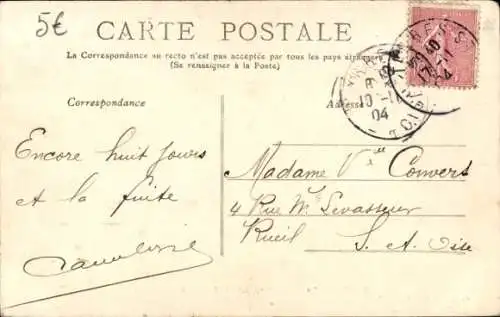 5€
CARTE POSTALE
La Correspondance au recto n'est pas acceptée par tous les pays étrangers
(Se renseigner à la Poste)
Correspondance
Adresse
04
Encore huit jours
et la fuite
Madame Vve Convers
4 Rue M. Levasseur
Rueil S. et Oise